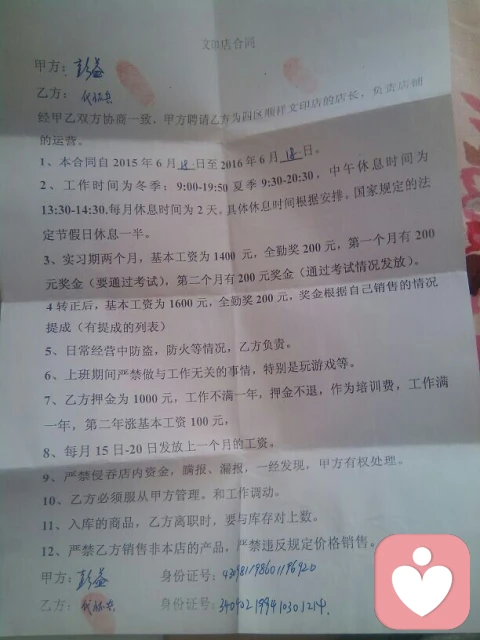 文印店合同
甲方：
乙方：
经甲乙双方协商一致、甲方聘请乙方为四区顺祥文印店的店长，负责店铺
的运营。
1、本合同自 2015 年 6 月 日至 2016 年 6 月 日。
2、工作时间为冬季：9:00-19:50 夏季 9:30-20:30，中午休息时间为
13:30-14:30.每月休息时间为 2 天，具体休息时间根据安排，国家规定的法
定节假日休息一半。
3、实习期两个月，基本工资为 1400 元，全勤奖 200 元，第一个月有 200
元奖金（要通过考试），第二个月有 200 元奖金（通过考试情况发放）。
4 转正后，基本工资为 1600 元，全勤奖 200 元，奖金根据自己销售的情况
提成（有提成的列表）
5、日常经营中防盗，防火等情况，乙方负责。
6、上班期间严禁做与工作无关的事情，特别是玩游戏等。
7、乙方押金为 1000 元，工作不满一年，押金不退，作为培训费，工作满
一年，第二年涨基本工资 100 元，
8、每月 15 日-20 日发放上一个月的工资。
9、严禁侵吞店内资金，瞒报、漏报，一经发现，甲方有权处理。
10、乙方必须服从甲方管理，和工作调动。
11、入库的商品，乙方离职时，要与库存对上数。
12、严禁乙方销售非本店的产品，严禁违反规定价格销售。
甲方： 身份证号：
乙方： 身份证号：